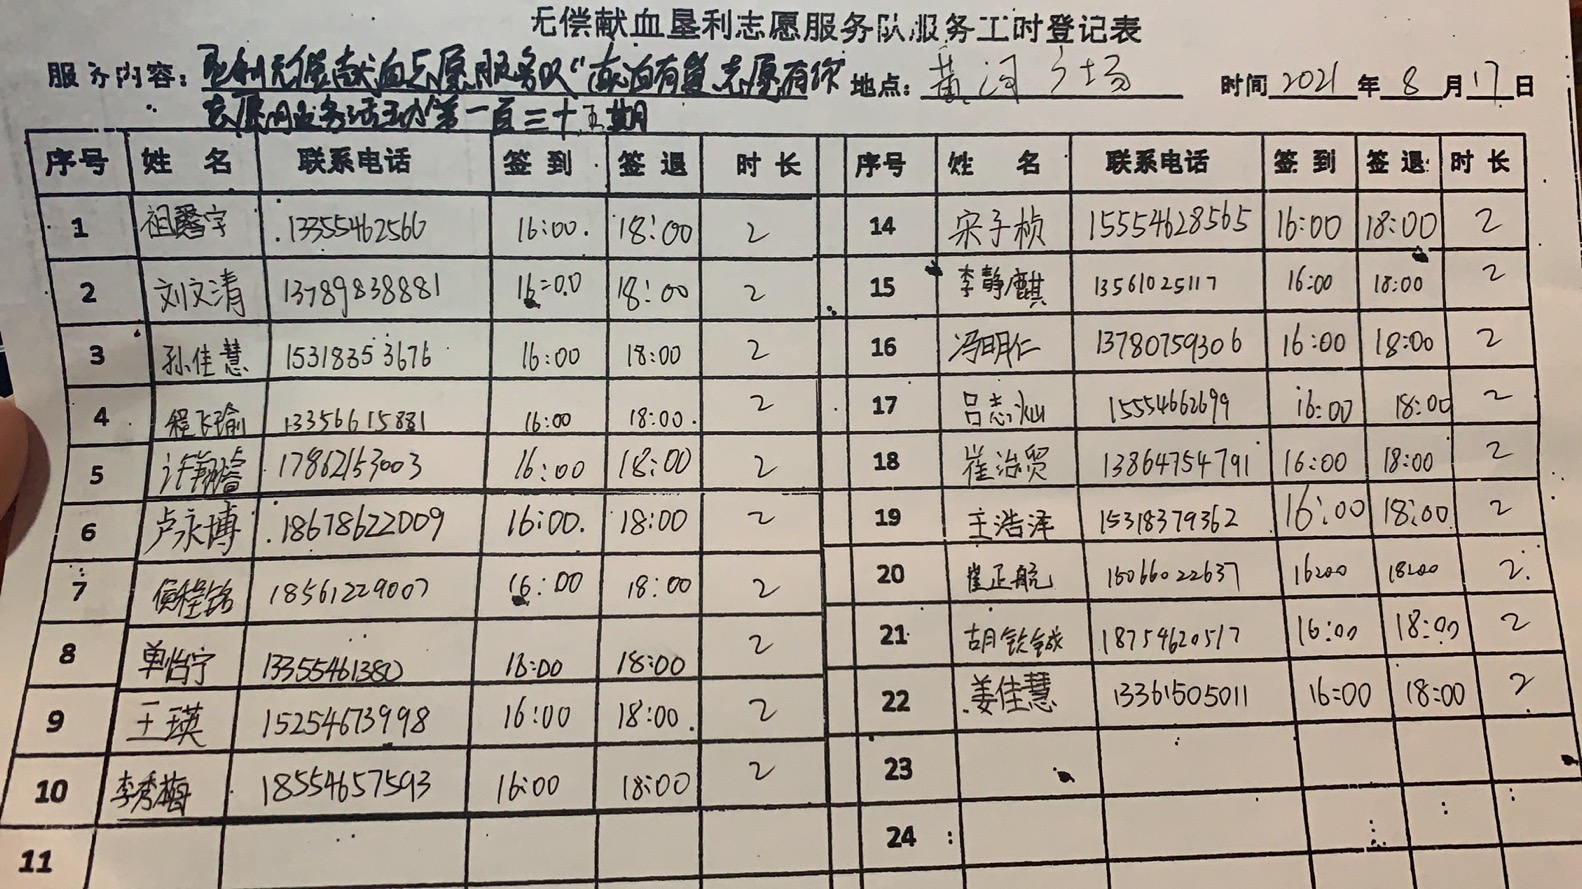 无偿献血垦利志愿服务队服务工时登记表
服务内容：垦利无偿献血志愿服务队“献血有益 志愿有你 地点：黄河广场 时间 2021 年 8 月 17 日
志愿服务活动”第一百三十五期
序号 姓 名 联系电话 签 到 签 退 时 长 序号 姓 名 联系电话 签 到 签 退 时 长
1 祖馨宇 13355462566 16:00 18:00 2 14 宋子桢 15554628565 16:00 18:00 2
2 刘文清 13789838881 16:00 18:00 2 15 李静麒 13561025117 16:00 18:00 2
3 孙佳慧 15318353676 16:00 18:00 2 16 冯明仁 13780759306 16:00 18:00 2
4 程飞瑜 13356615881 16:00 18:00 2 17 吕志灿 15554662699 16:00 18:00 2
5 许翔睿 17862153003 16:00 18:00 2 18 崔治贤 13864754791 16:00 18:00 2
6 卢永博 18678622009 16:00 18:00 2 19 王浩泽 15318379362 16:00 18:00 2
7 程铭 18561229007 16:00 18:00 2 20 崔正航 15066022637 16:00 18:00 2
8 单怡宁 13355461380 18:00 18:00 2 21 胡铁铖 18754620517 16:00 18:00 2
9 王瑛 15254673998 16:00 18:00 2 22 姜佳慧 13361505011 16:00 18:00 2
10 李秀梅 18554657593 16:00 18:00 2 23
11 24